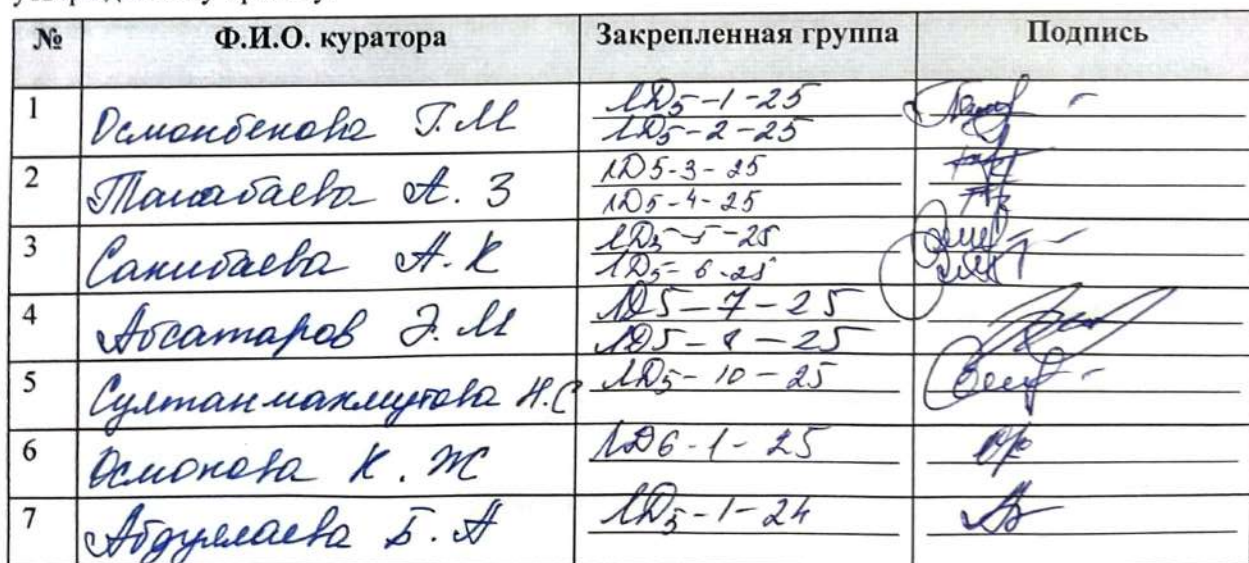 № Ф.И.О. куратора Закрепленная группа Подпись
1 Осмонбекова Г.М ЛД5-1-25
ЛД5-2-25
2 А. З ЛД5-3-25
ЛД5-4-25
3 Санибаева А.К ЛД5-5-25
ЛД5-6-25
4 Абсатаров Э.М ЛД5-7-25
ЛД5-8-25
5 Султанмахмутова Н.С ЛД5-10-25
6 Осмонова К.Ж ЛД6-1-25
7 Абдуллаева Б.А ЛД5-1-24